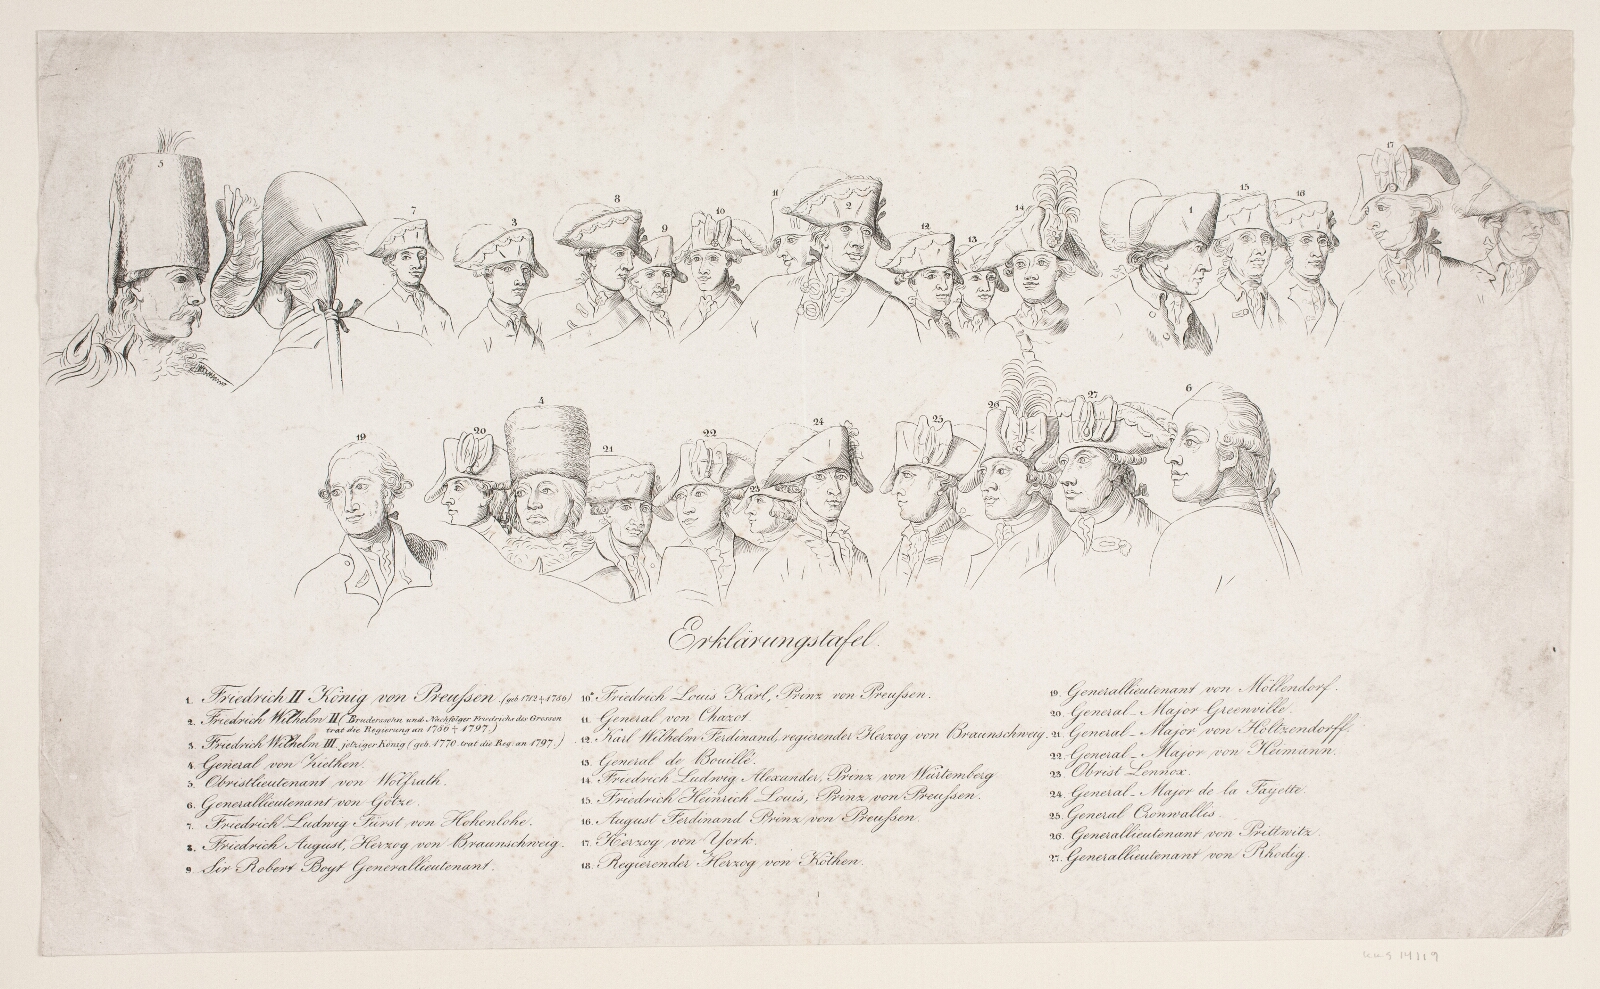 5
7
3
8
9
10
11
2
12
13
14
1
15
16
17
19
20
4
21
22
23
24
25
26
27
6
Erklärungstafel.
1. Friedrich II König von Preußen (geb. 1712 † 1786)
2. Friedrich Wilhelm II (Brudersohn und Nachfolger Friedrichs des Grossen
trat die Regierung an 1786 † 1797.)
3. Friedrich Wilhelm III. jetziger König (geb. 1770. trat die Reg. an 1797.)
4. General von Ziethen.
5. Obristlieutenant von Wolfrath.
6. Generallieutenant von Götze.
7. Friedrich Ludwig Fürst von Hohenlohe.
8. Friedrich August, Herzog von Braunschweig.
9. Sir Robert Boyt Generallieutenant.
10. Friedrich Louis Karl, Prinz von Preußen.
11. General von Chazot
12. Karl Wilhelm Ferdinand, regierender Herzog von Braunschweig.
13. General de Bouillé.
14. Friedrich Ludwig Alexander, Prinz von Würtemberg
15. Friedrich Heinrich Louis, Prinz von Preußen.
16. August Ferdinand Prinz von Preußen.
17. Herzog von York.
18. Regierender Herzog von Köthen.
19. Generallieutenant von Möllendorf.
20. General-Major Greenville.
21. General-Major von Holtzendorff.
22. General-Major von Heimann.
23. Obrist Lennox.
24. General-Major de la Fayette.
25. General Cronwallis.
26. Generallieutenant von Prittwitz.
27. Generallieutenant von Rhodig.
KKS 14119